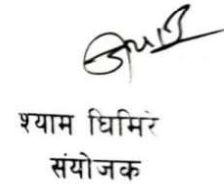 श्याम घिमिरे
संयोजक